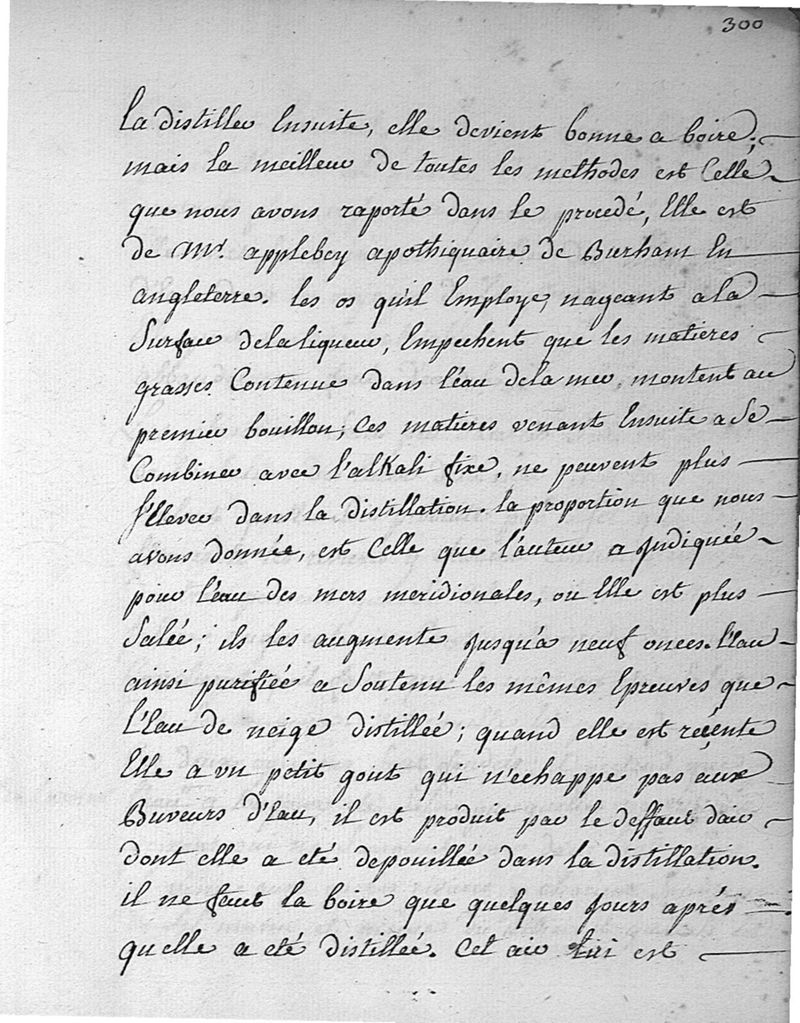 300
la distiller Ensuite, elle devient bonne a boire;
mais la meilleur de toutes les methodes est Celle
que nous avons raporté dans le procedé, Elle est
de Mr. appleby apothiquaire de Burham En
angleterre. les os qu'il Employe, nageant a la
Surface de la liqueur, Empechent que les matieres
grasses Contenue dans l'éau de la mer, montent au
premier bouillon; Ces matieres venant Ensuite a Se
Combiner avec l'alKali fixe, ne peuvent plus
s'Elever dans la distillation. la proportion que nous
avons donnée, est Celle que l'auteur a Jndiquée
pour l'éau des mers meridionales, ou Elle est plus
Salée; ils les augmente Jusqu'a neuf onces. l'Eau
ainsi purifiée a Soutenu les mêmes Epreuves que
l'Eau de neige distillée; quand elle est reçente
Elle a vn petit gout qui n'echappe pas aux
Buveurs d'Eau, il est produit par le deffaut dair
dont elle a eté depouillée dans la distillation.
il ne faut la boire que quelques Jours aprés
quelle a eté distillée. Cet air lui est